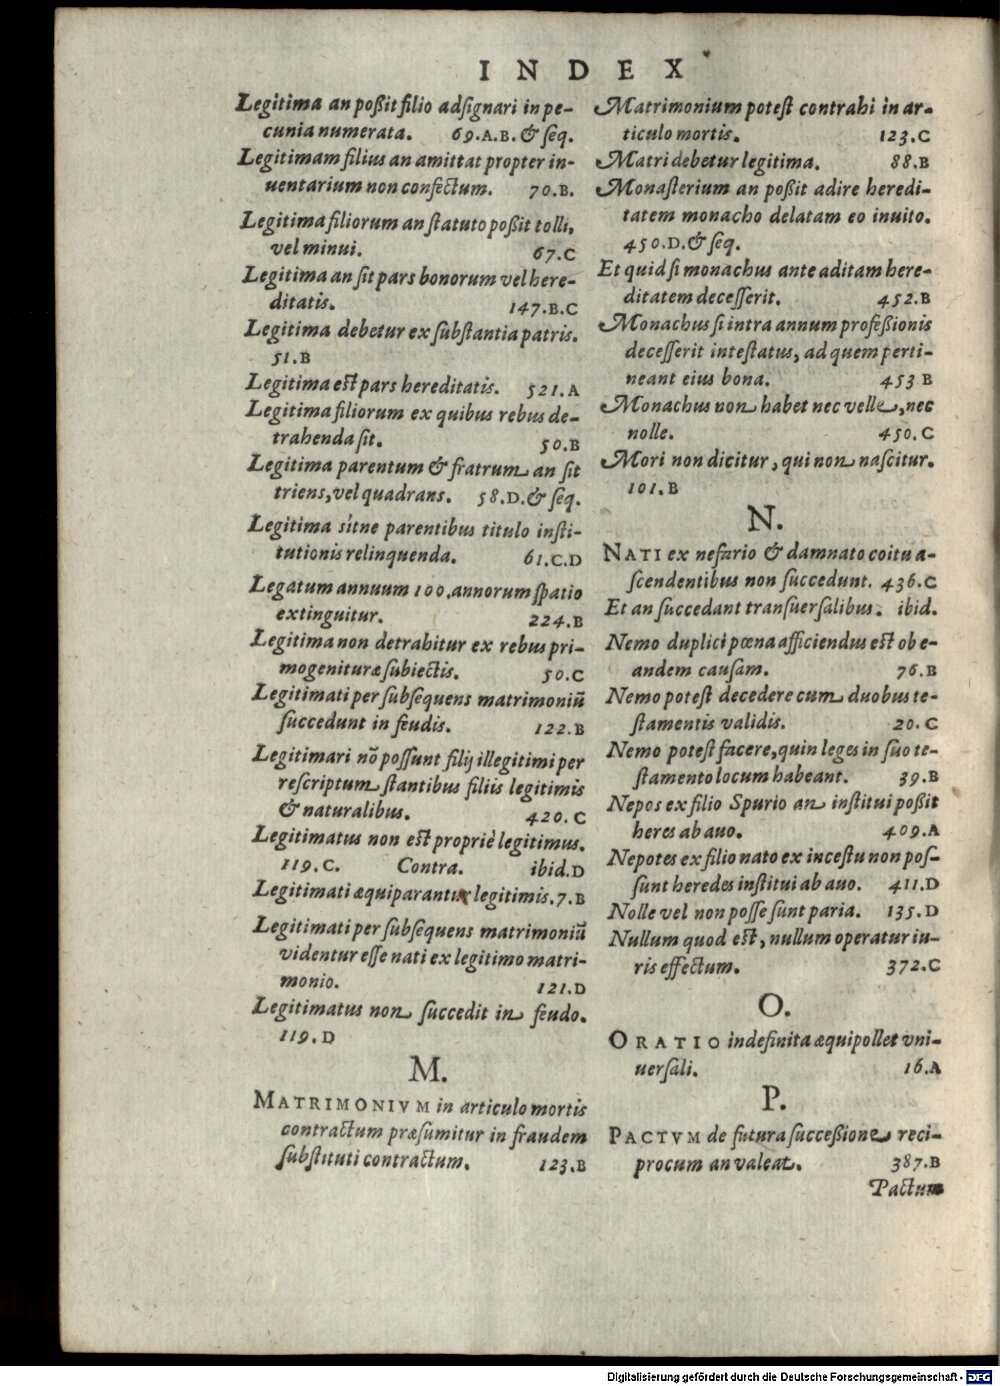 INDEX
Legitima an poßit filio adſignari in pe-
cunia numerata. 69.A.B. & ſeq.
Legitimam filius an amittat propter in-
uentarium non confectum. 70.B.
Legitima filiorum an ſtatuto poßit tolli,
vel minui. 67.C
Legitima an ſit pars bonorum vel here-
ditatis. 147.B.C
Legitima debetur ex ſubſtantia patris.
51.B
Legitima eſt pars hereditatis. 521.A
Legitima filiorum ex quibus rebus de-
trahenda ſit. 50.B
Legitima parentum & fratrum an ſit
triens, vel quadrans. 58.D.& ſeq.
Legitima sitne parentibus titulo inſti-
tutionis relinquenda. 61.C.D
Legatum annuum 100. annorum ſpatio
extinguitur. 224.B
Legitima non detrahitur ex rebus pri-
mogenituræ ſubiectis. 50.C
Legitimati per ſubſequens matrimoniū
ſuccedunt in feudis. 122.B
Legitimari nō poſſunt filij illegitimi per
reſcriptum ſtantibus filiis legitimis
& naturalibus. 420.C
Legitimatus non eſt propriè legitimus.
119.C. Contra. ibid.D
Legitimati æquiparantur legitimis. 7.B
Legitimati per ſubſequens matrimoniū
videntur eſſe nati ex legitimo matri-
monio. 121.D
Legitimatus non ſuccedit in feudo.
119.D
M.
MATRIMONIVM in articulo mortis
contractum præſumitur in fraudem
ſubſtituti contractum. 123.B
Matrimonium poteſt contrahi in ar-
ticulo mortis. 123.C
Matri debetur legitima. 88.B
Monaſterium an poßit adire heredi-
tatem monacho delatam eo inuito.
450.D.& ſeq.
Et quid ſi monachus ante aditam here-
ditatem deceſſerit. 452.B
Monachus ſi intra annum profeßionis
deceſſerit inteſtatus, ad quem perti-
neant eius bona. 453 B
Monachus non habet nec velle, nec
nolle. 450.C
Mori non dicitur, qui non naſcitur.
101.B
N.
NATI ex nefario & damnato coitu a-
ſcendentibus non ſuccedunt. 436.C
Et an ſuccedant tranſuerſalibus. ibid.
Nemo duplici pœna afficiendus eſt ob e-
andem cauſam. 76.B
Nemo poteſt decedere cum duobus te-
ſtamentis validis. 20.C
Nemo poteſt facere, quin leges in ſuo te-
ſtamento locum habeant. 39.B
Nepos ex filio Spurio an inſtitui poßit
heres ab auo. 409.A
Nepotes ex filio nato ex inceſtu non poſ-
ſunt heredes inſtitui ab auo. 411.D
Nolle vel non poſſe ſunt paria. 135.D
Nullum quod eſt, nullum operatur iu-
ris effectum. 372.C
O.
ORATIO indefinita æquipollet vni-
uerſali. 16.A
P.
PACTVM de futura ſucceßione reci-
procum an valeat. 387.B
Pactum
Digitalisierung gefördert durch die Deutsche Forschungsgemeinschaft - DFG